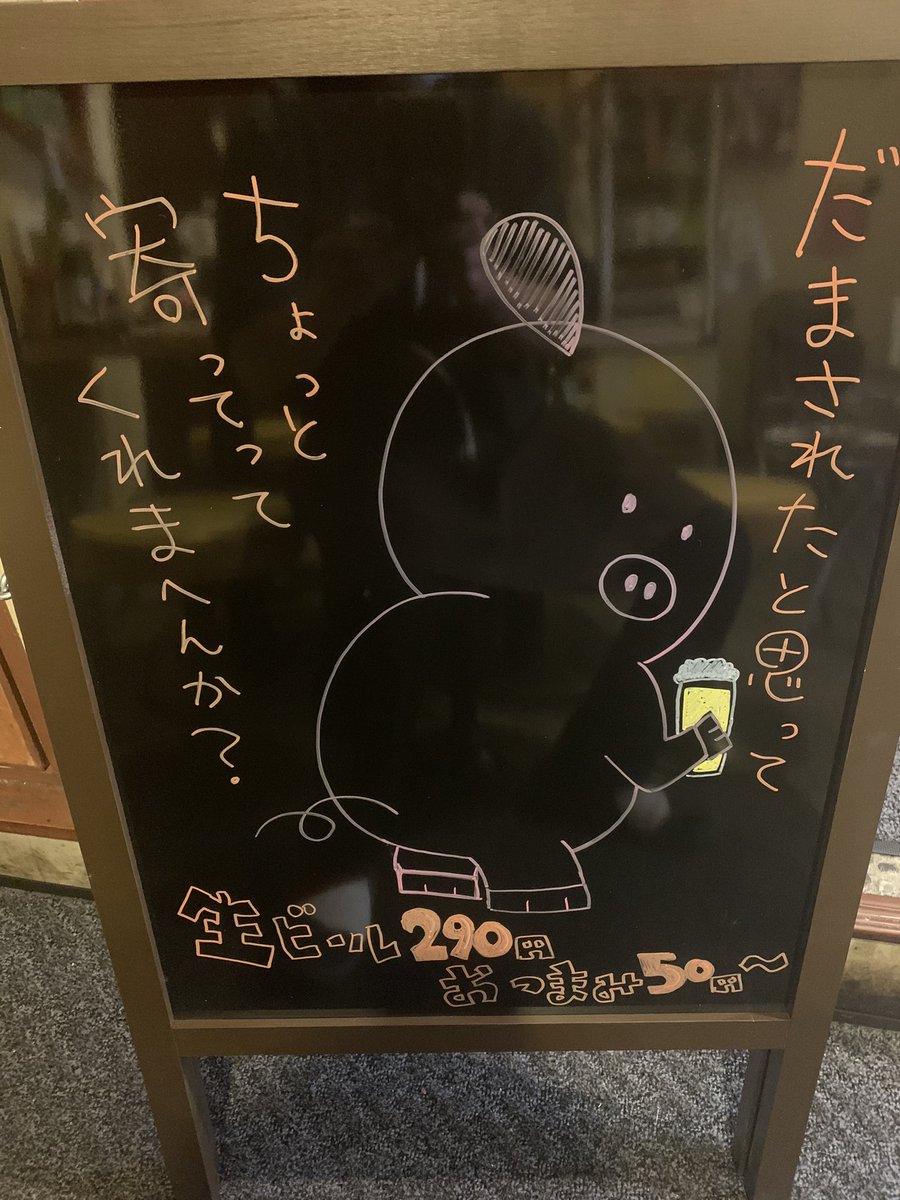 だまされたと思って
ちょっと
寄ってって
くれまへんか?
生ビール290円
おつまみ50円〜